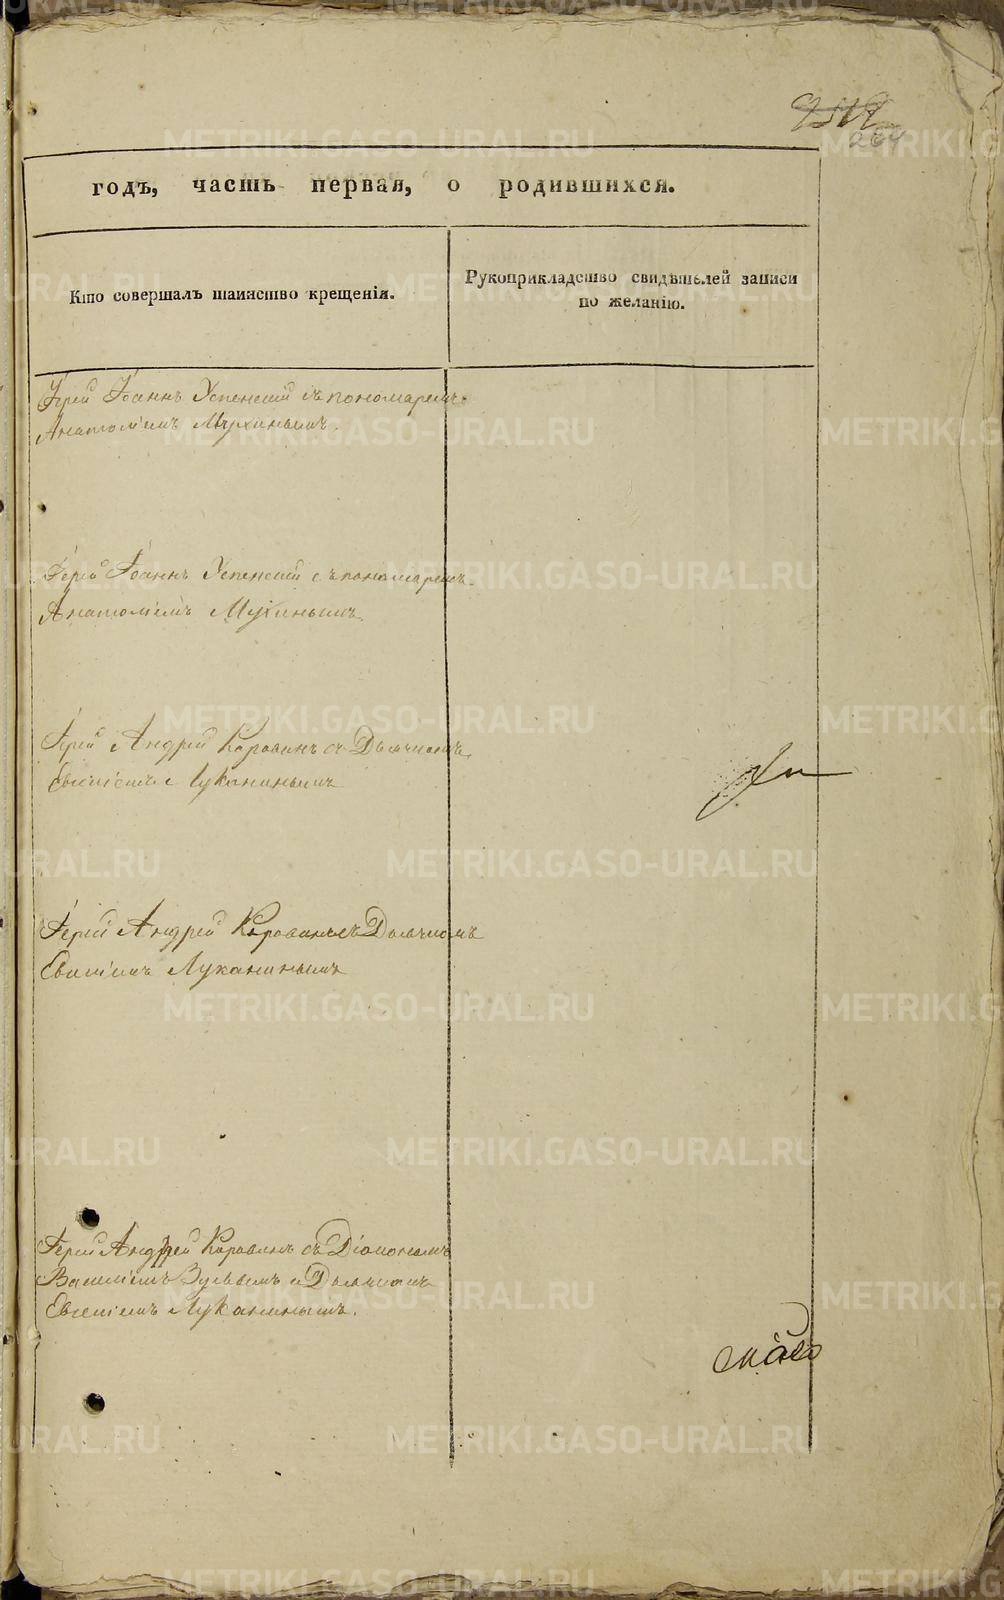 264
годъ, часть первая, о родившихся.
Кто совершалъ таинство крещенія.
Рукоприкладство свидѣтелей записи
по желанію.
Іерей Іоаннъ Успенскій съ пономаремъ
Анатоліемъ Мухинымъ.
Іерей Іоаннъ Успенскій съ пономаремъ
Анатоліемъ Мухинымъ.
Іерей Андрей Коровинъ съ Дьячкомъ
Евгеніемъ Луканинымъ
Іерей Андрей Коровинъ съ Дьячкомъ
Евгеніемъ Луканинымъ
Іерей Андрей Коровинъ съ Діакономъ
Василіемъ и Дьячкомъ
Евгеніемъ Луканинымъ.
METRIKI.GASO-URAL.RU